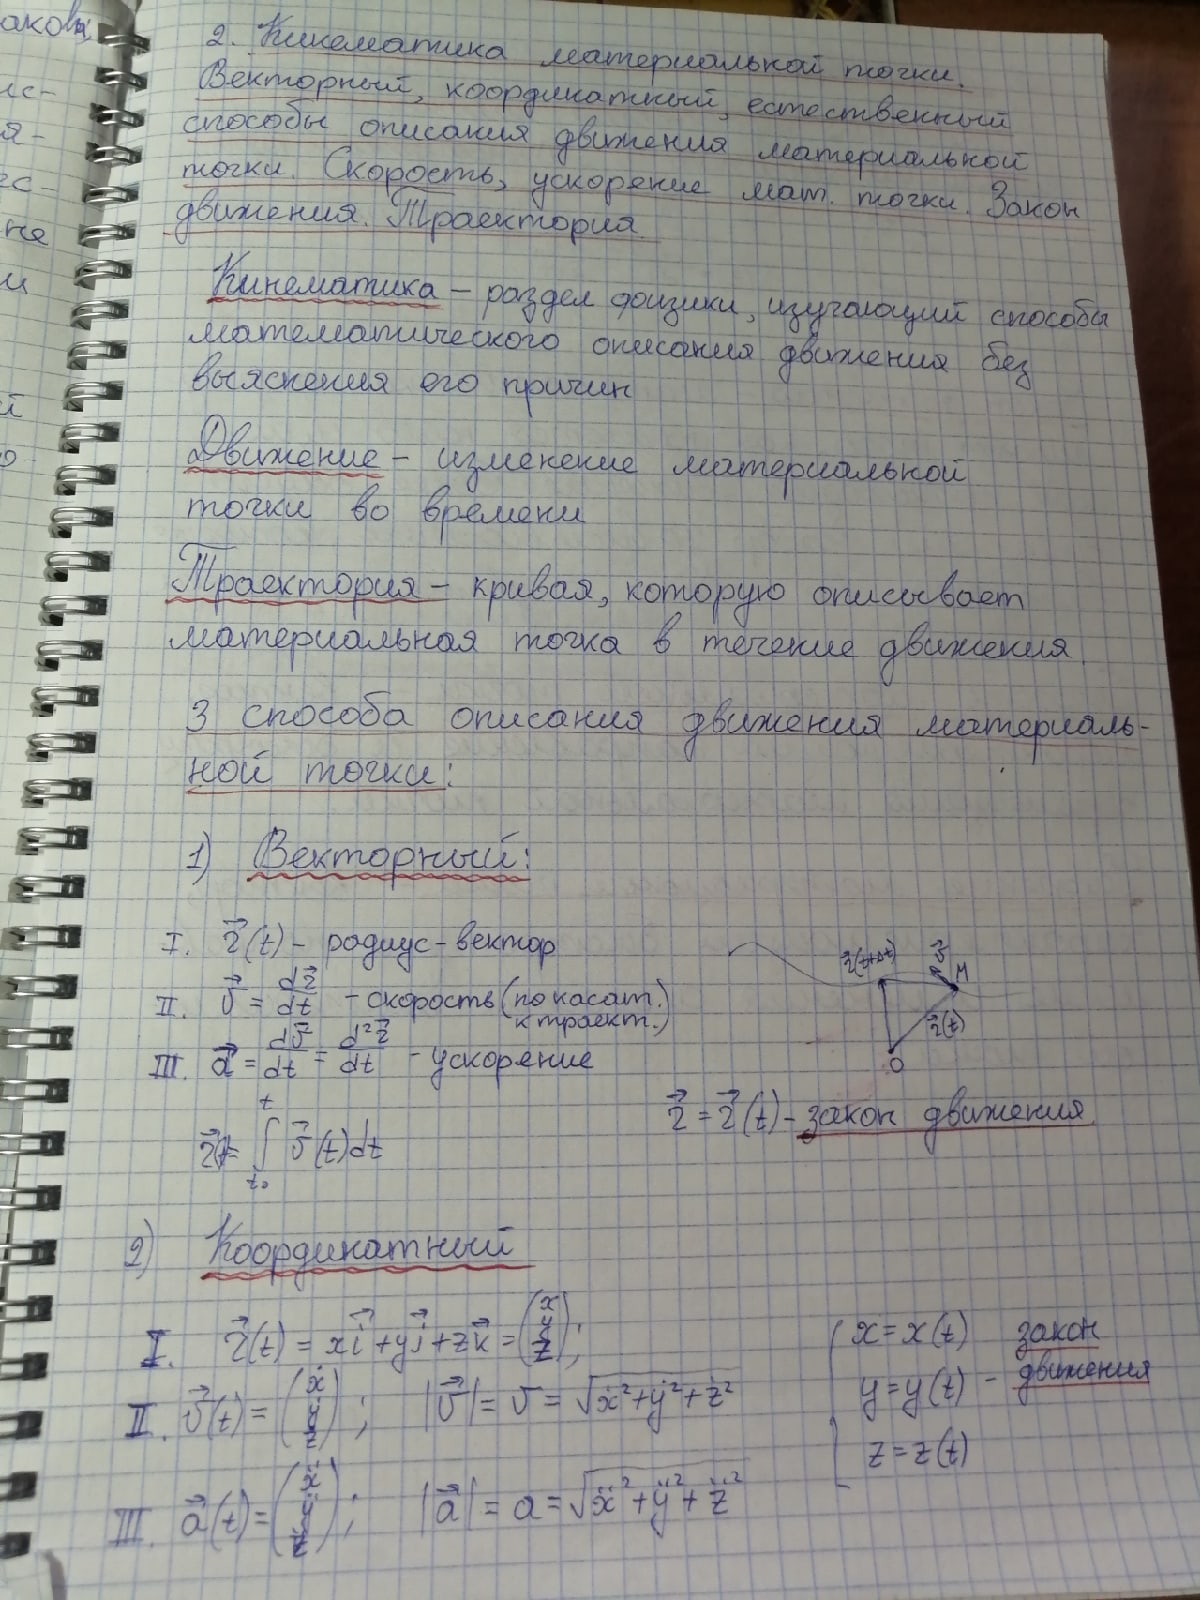 аковы,
ис-
я-
ес-
не
и
й
о
2. Кинематика материальной точки.
Векторный, координатный, естественный
способы описания движения материальной
точки. Скорость, ускорение мат. точки. Закон
движения. Траектория.
Кинематика – раздел физики, изучающий способы
математического описания движения без
выяснения его причин
Движение – изменение материальной
точки во времени
Траектория – кривая, которую описывает
материальная точка в течение движения.
3 способа описания движения материаль-
ной точки:
1) Векторный:
I. r⃗(t) – радиус-вектор
II. v⃗ = dr⃗/dt – скорость (по касат. к траект.)
III. a⃗ = dv⃗/dt = d²r⃗/dt – ускорение
r⃗(t+Δt) v⃗ M
r⃗(t)
O
r⃗ = r⃗(t) – закон движения
r⃗ = ∫ₜ₀ᵗ v⃗(t)dt
2) Координатный
I. r⃗(t) = xi⃗ + yj⃗ + zk⃗ = (x y z);
II. v⃗(t) = (ẋ ẏ ż); |v⃗| = v = √(ẋ² + ẏ² + ż²)
III. a⃗(t) = (ẍ ÿ z̈); |a⃗| = a = √(ẍ² + ÿ² + z̈²)
x = x(t) закон
y = y(t) – движения
z = z(t)